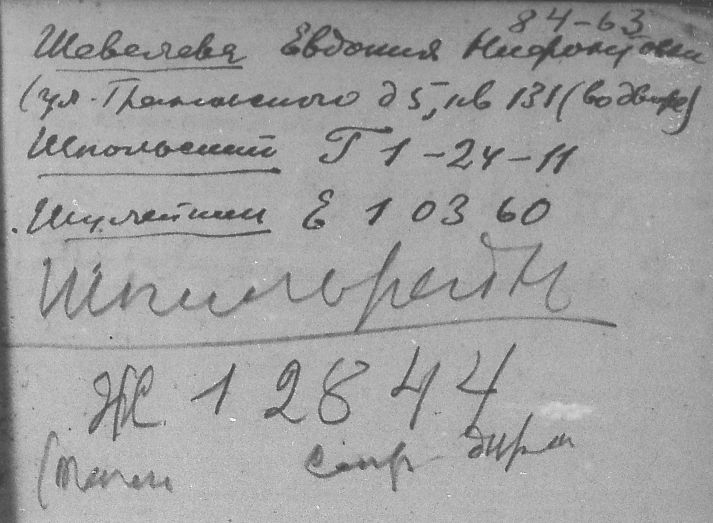 84-63
Шевелева Евдокия Нифонтовна
(ул. Грановского д 5, кв 131 (во дворе)
Шпольский Г 1-24-11
Шулейкин Е 1 03 60
Шпильрейн
Ж 1 28 44
секр. дира